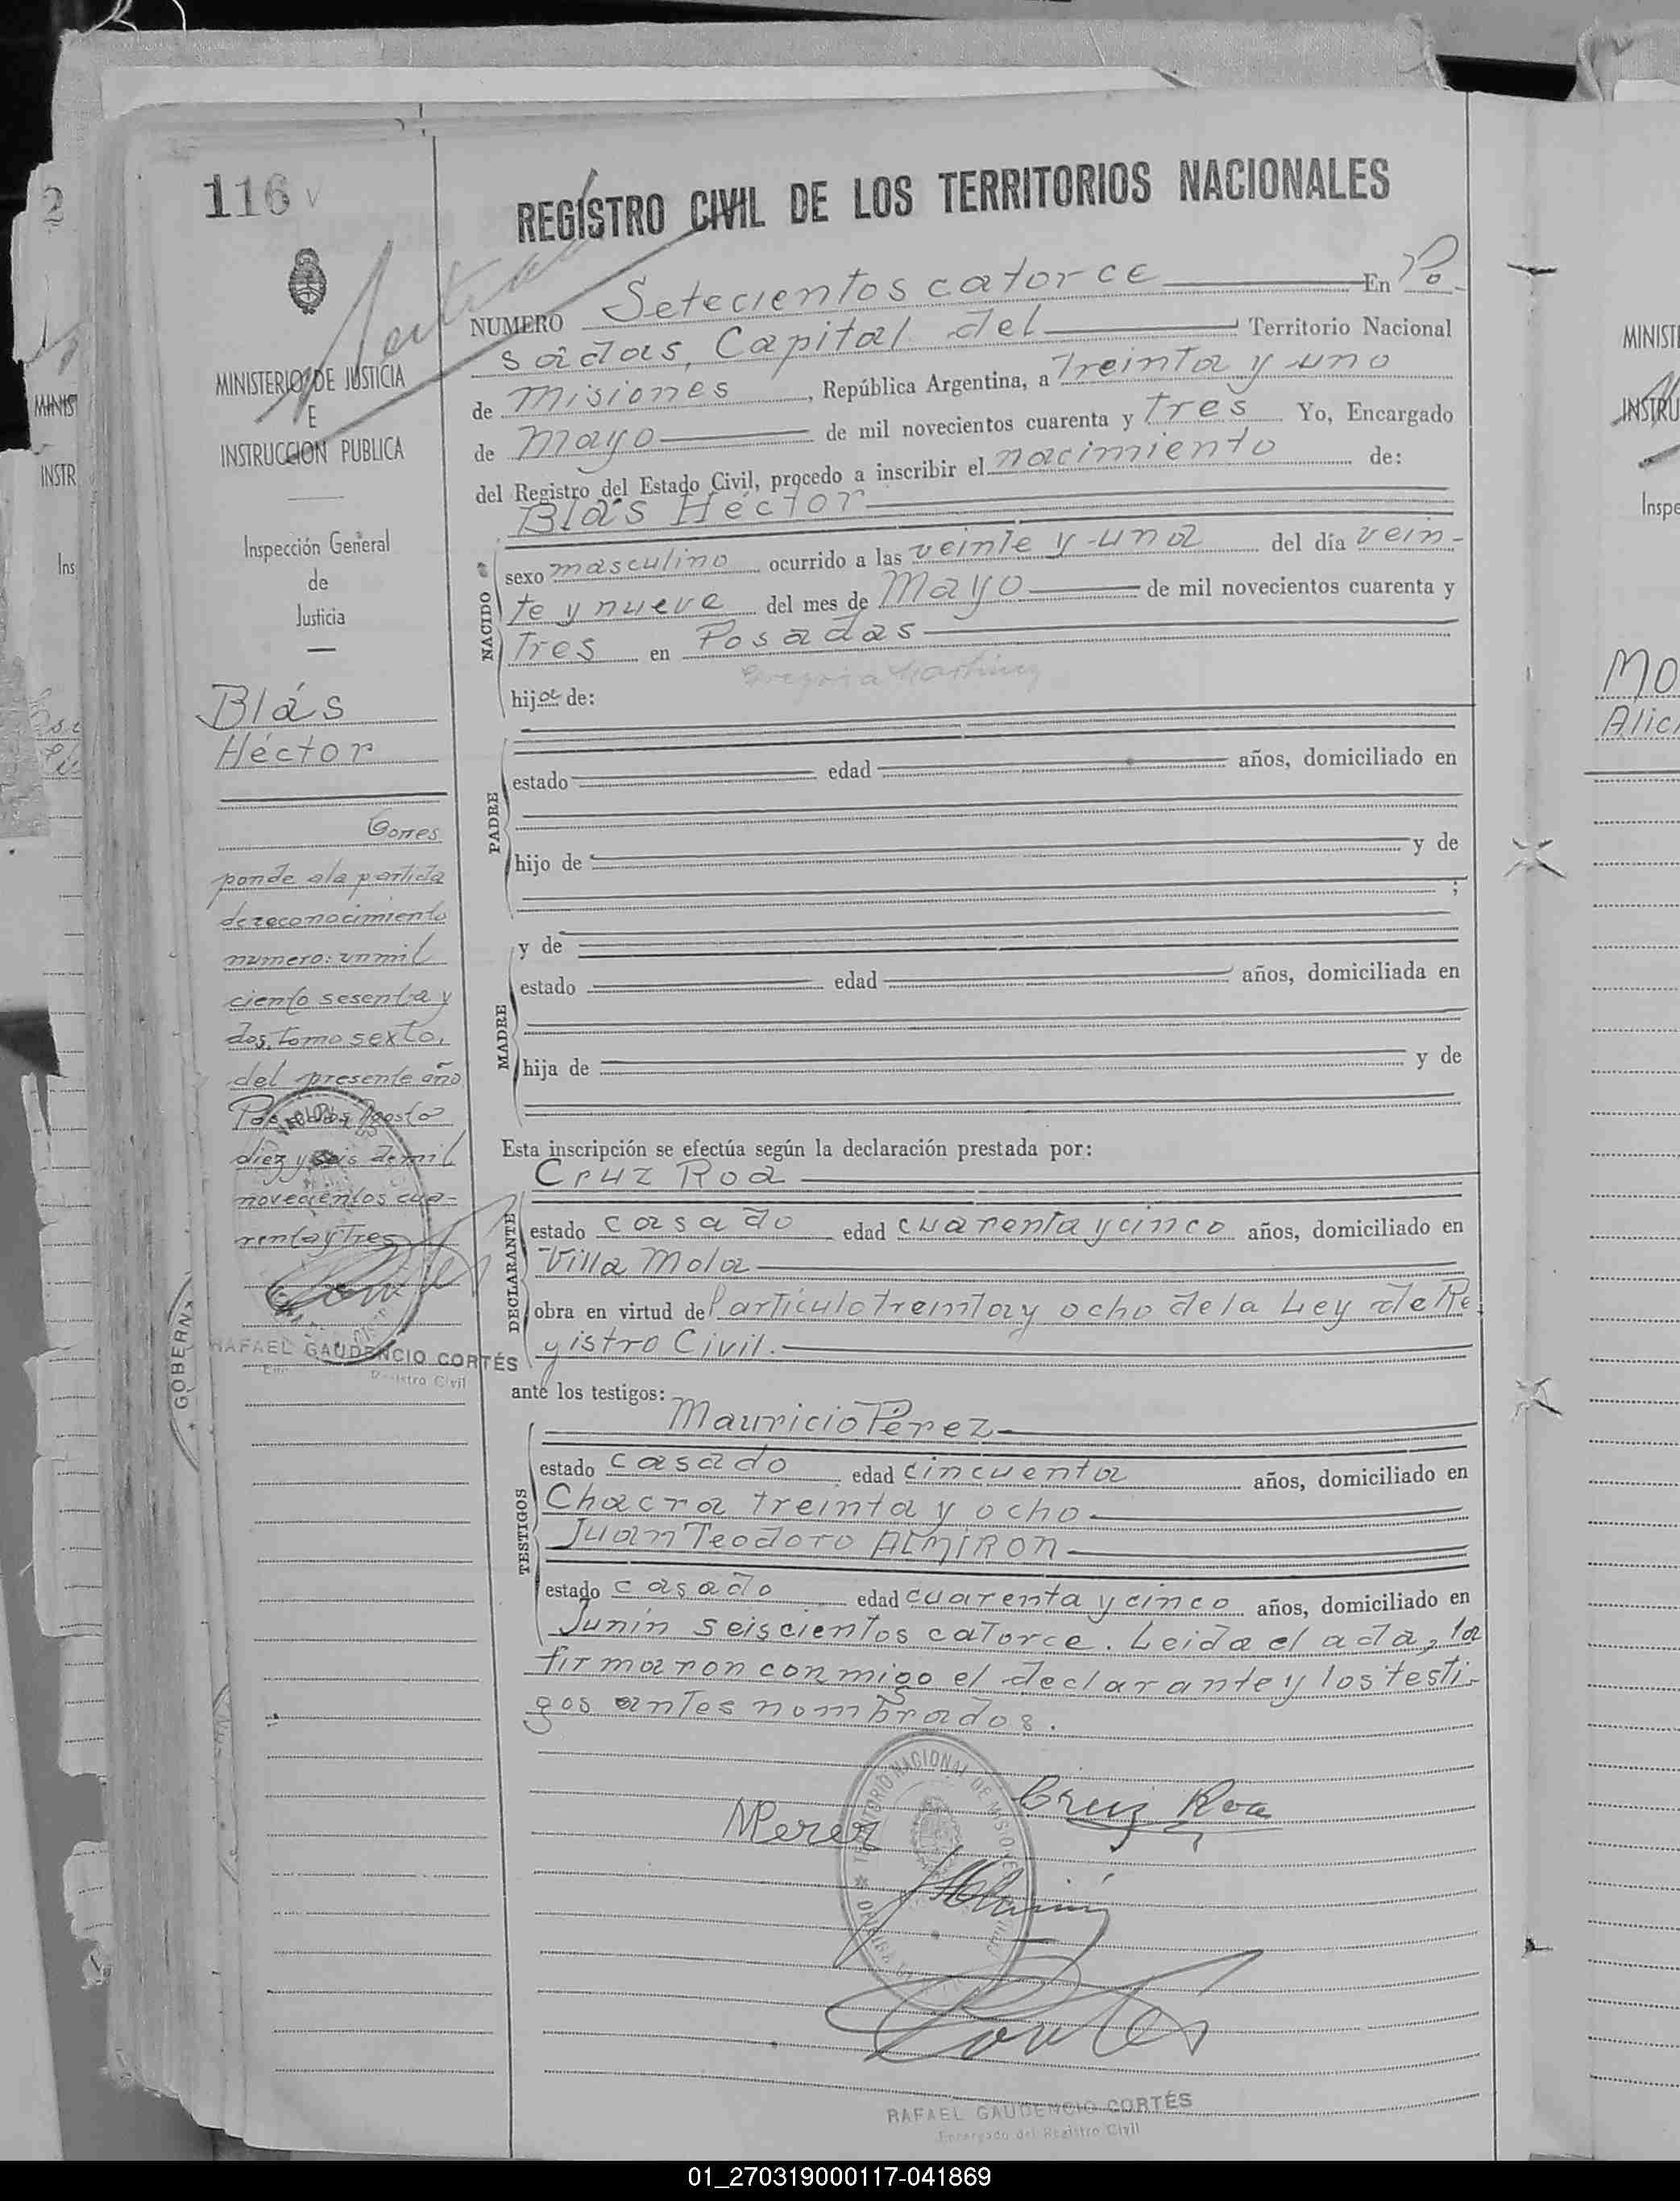 116 v
REGISTRO CIVIL DE LOS TERRITORIOS NACIONALES
NUMERO Setecientos catorce En Po
sadas, Capital del Territorio Nacional
de Misiones, República Argentina, a Treinta y uno
de Mayo de mil novecientos cuarenta y tres Yo, Encargado
del Registro del Estado Civil, procedo a inscribir el nacimiento de:
Blás Héctor
NACIDO
sexo masculino ocurrido a las veinte y una del día vein-
te y nueve del mes de Mayo de mil novecientos cuarenta y
tres en Posadas
Gregoria Martinez
hijo de:
PADRE
estado edad años, domiciliado en
hijo de y de
;
MADRE
y de
estado edad años, domiciliada en
hija de y de
Esta inscripción se efectúa según la declaración prestada por:
Cruz Roa
DECLARANTE
estado casado edad cuarenta y cinco años, domiciliado en
Villa Mola
obra en virtud del artículo treinta y ocho de la Ley de Re
gistro Civil.
ante los testigos:
Mauricio Pérez
TESTIGOS
estado casado edad cincuenta años, domiciliado en
Chacra treinta y ocho
Juan Teodoro ALMIRON
estado casado edad cuarenta y cinco años, domiciliado en
Junín seiscientos catorce. Leida el acta, la
firmaron conmigo el declarante y los testi-
gos antes nombrados.
Cruz Roa
MPerez
Cortés
TERRITORIO NACIONAL DE MISIONES
RAFAEL GAUDENCIO CORTÉS
Encargado del Registro Civil
MINISTERIO DE JUSTICIA
E
INSTRUCCION PUBLICA
Inspección General
de
Justicia
Blás
Héctor
Corres
ponde a la partida
de reconocimiento
numero: un mil
ciento sesenta y
dos, tomo sexto,
del presente año
Posadas Agosto
diez y seis de mil
novecientos cua-
renta y tres
RAFAEL GAUDENCIO CORTÉS
Registro Civil
GOBERN
2
MINIS
INSTR
Ins
MINISTE
INSTRU
Inspe
Mo
Alic
01_270319000117-041869